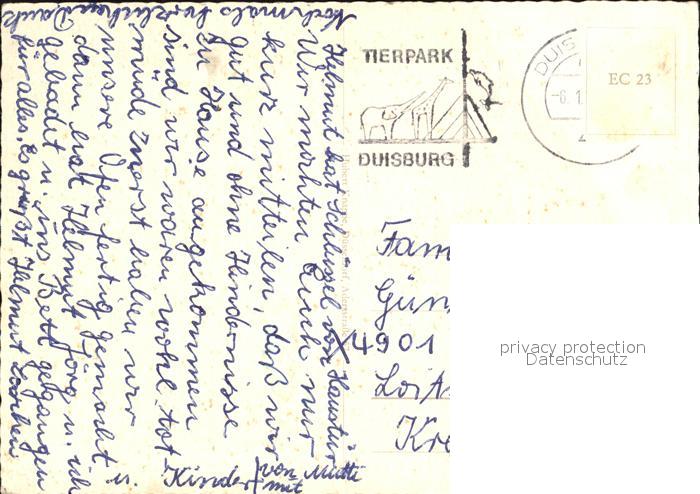 TIERPARK
DUISBURG
DUIS
-6.1.
EC 23
Helmut hat Schlüssel von Haustür
Wir möchten Euch nur
kurz mitteilen, daß wir
gut und ohne Hindernisse
zu Hause angekommen
sind wir waren wohl tot-
müde zuerst haben wir
unsere Öfen fertig gemacht u.
dann hat Helmut Jörg u. ich
gebadet u. ins Bett gegangen
Nochmals herzlichen Dank
für alles. Es grüßt Helmut Lorchen
Kinder
von Mutti
mit
Fam
Gün
X4901
Kre
privacy protection
Datenschutz